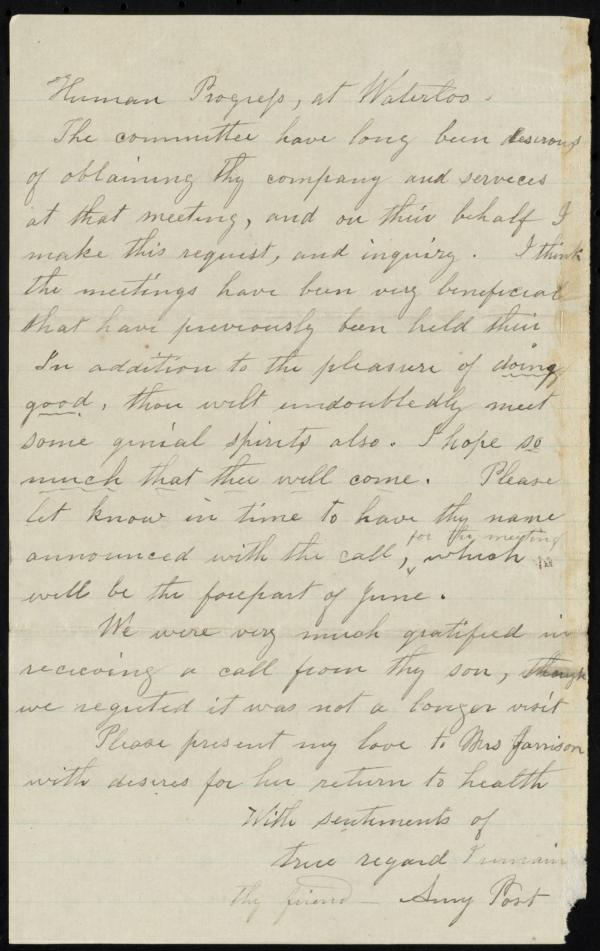 Human Progress, at Waterloo.
The committee have long been desirous
of obtaining thy company and services
at that meeting, and on their behalf I
make this request, and inquiry. I think
the meetings have been very beneficial
that have previously been held their
In addition to the pleasure of doing
good, thou wilt undoubtedly meet
some genial spirits also. I hope so
much that thee will come. Please
let know in time to have thy name
for the meeting
announced with the call, which
will be the forepart of June.
We were very much gratified in
recieving a call from thy son, though
we regreted it was not a longer visit
Please present my love to Mrs Garrison
with desires for her return to health
With sentiments of
true regard I remain
thy friend — Amy Post